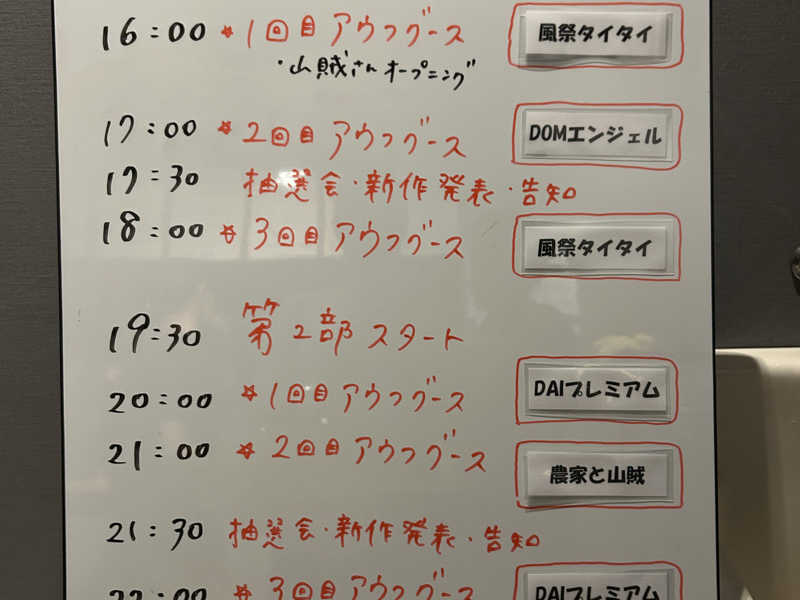 16:00 ☆1回目 アウフグース 風祭タイタイ
・山賊さん オープニング
17:00 ☆2回目 アウフグース DOMエンジェル
17:30 抽選会・新作発表・告知
18:00 ☆3回目 アウフグース 風祭タイタイ
19:30 第2部 スタート
20:00 ☆1回目 アウフグース DAIプレミアム
21:00 ☆2回目 アウフグース 農家と山賊
21:30 抽選会・新作発表・告知
22:00 ☆3回目 アウフグース DAIプレミアム